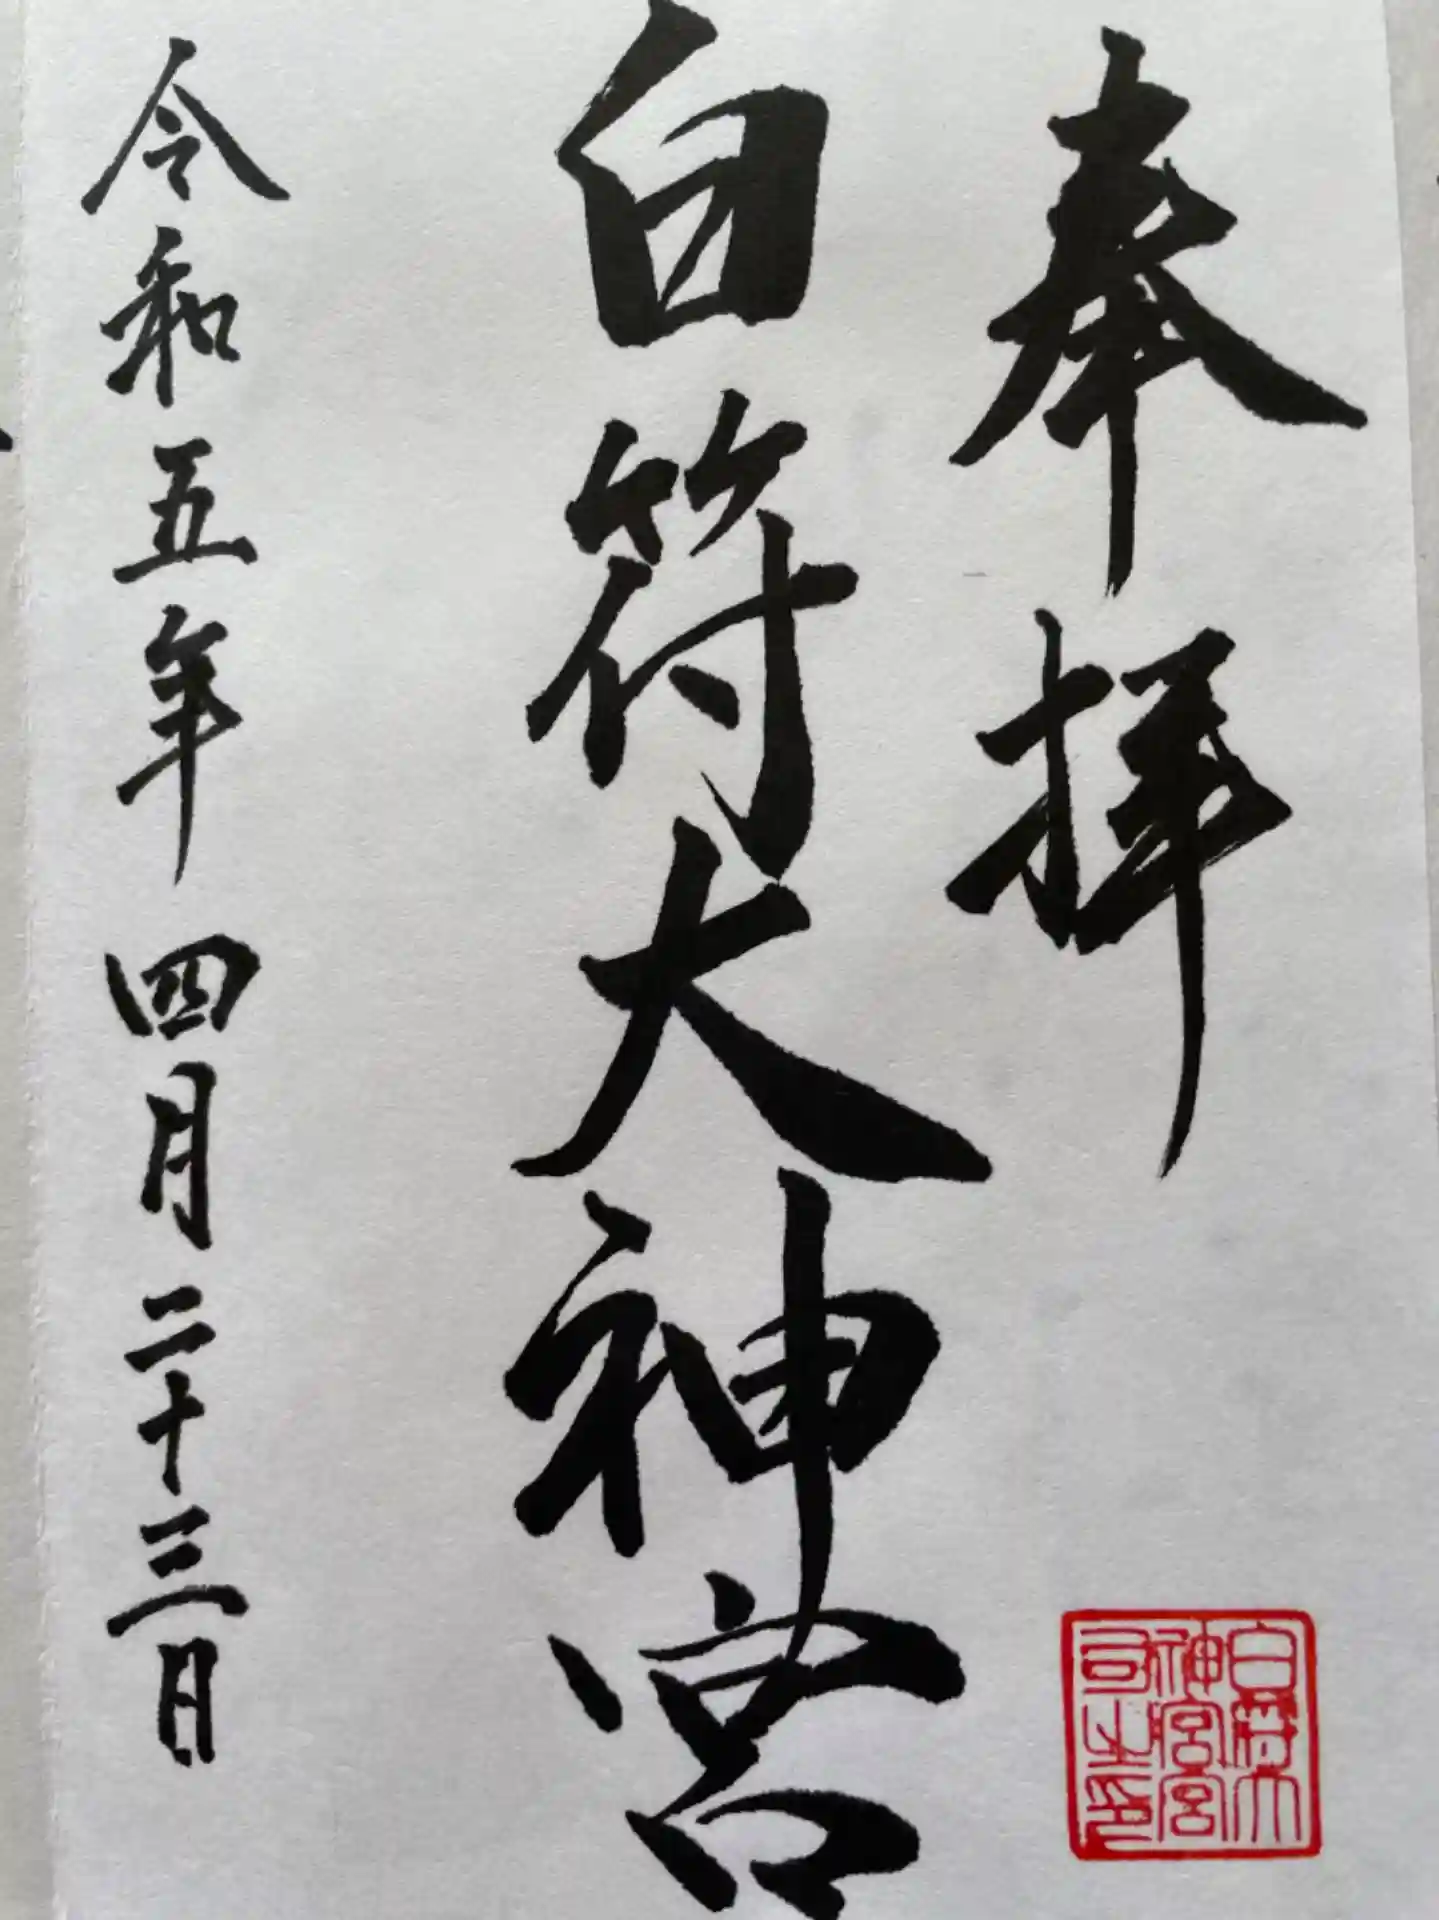 奉拝
白符大神宮
白符大
神宮宮
司之印
令和五年 四月二十三日